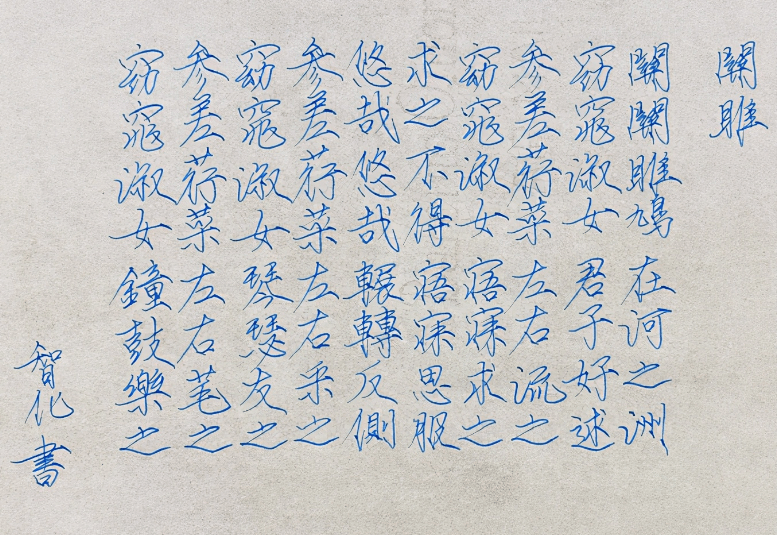 關雎
關關雎鳩 在河之洲
窈窕淑女 君子好逑
參差荇菜 左右流之
窈窕淑女 寤寐求之
求之不得 寤寐思服
悠哉悠哉 輾轉反側
參差荇菜 左右采之
窈窕淑女 琴瑟友之
參差荇菜 左右芼之
窈窕淑女 鐘鼓樂之
智化書